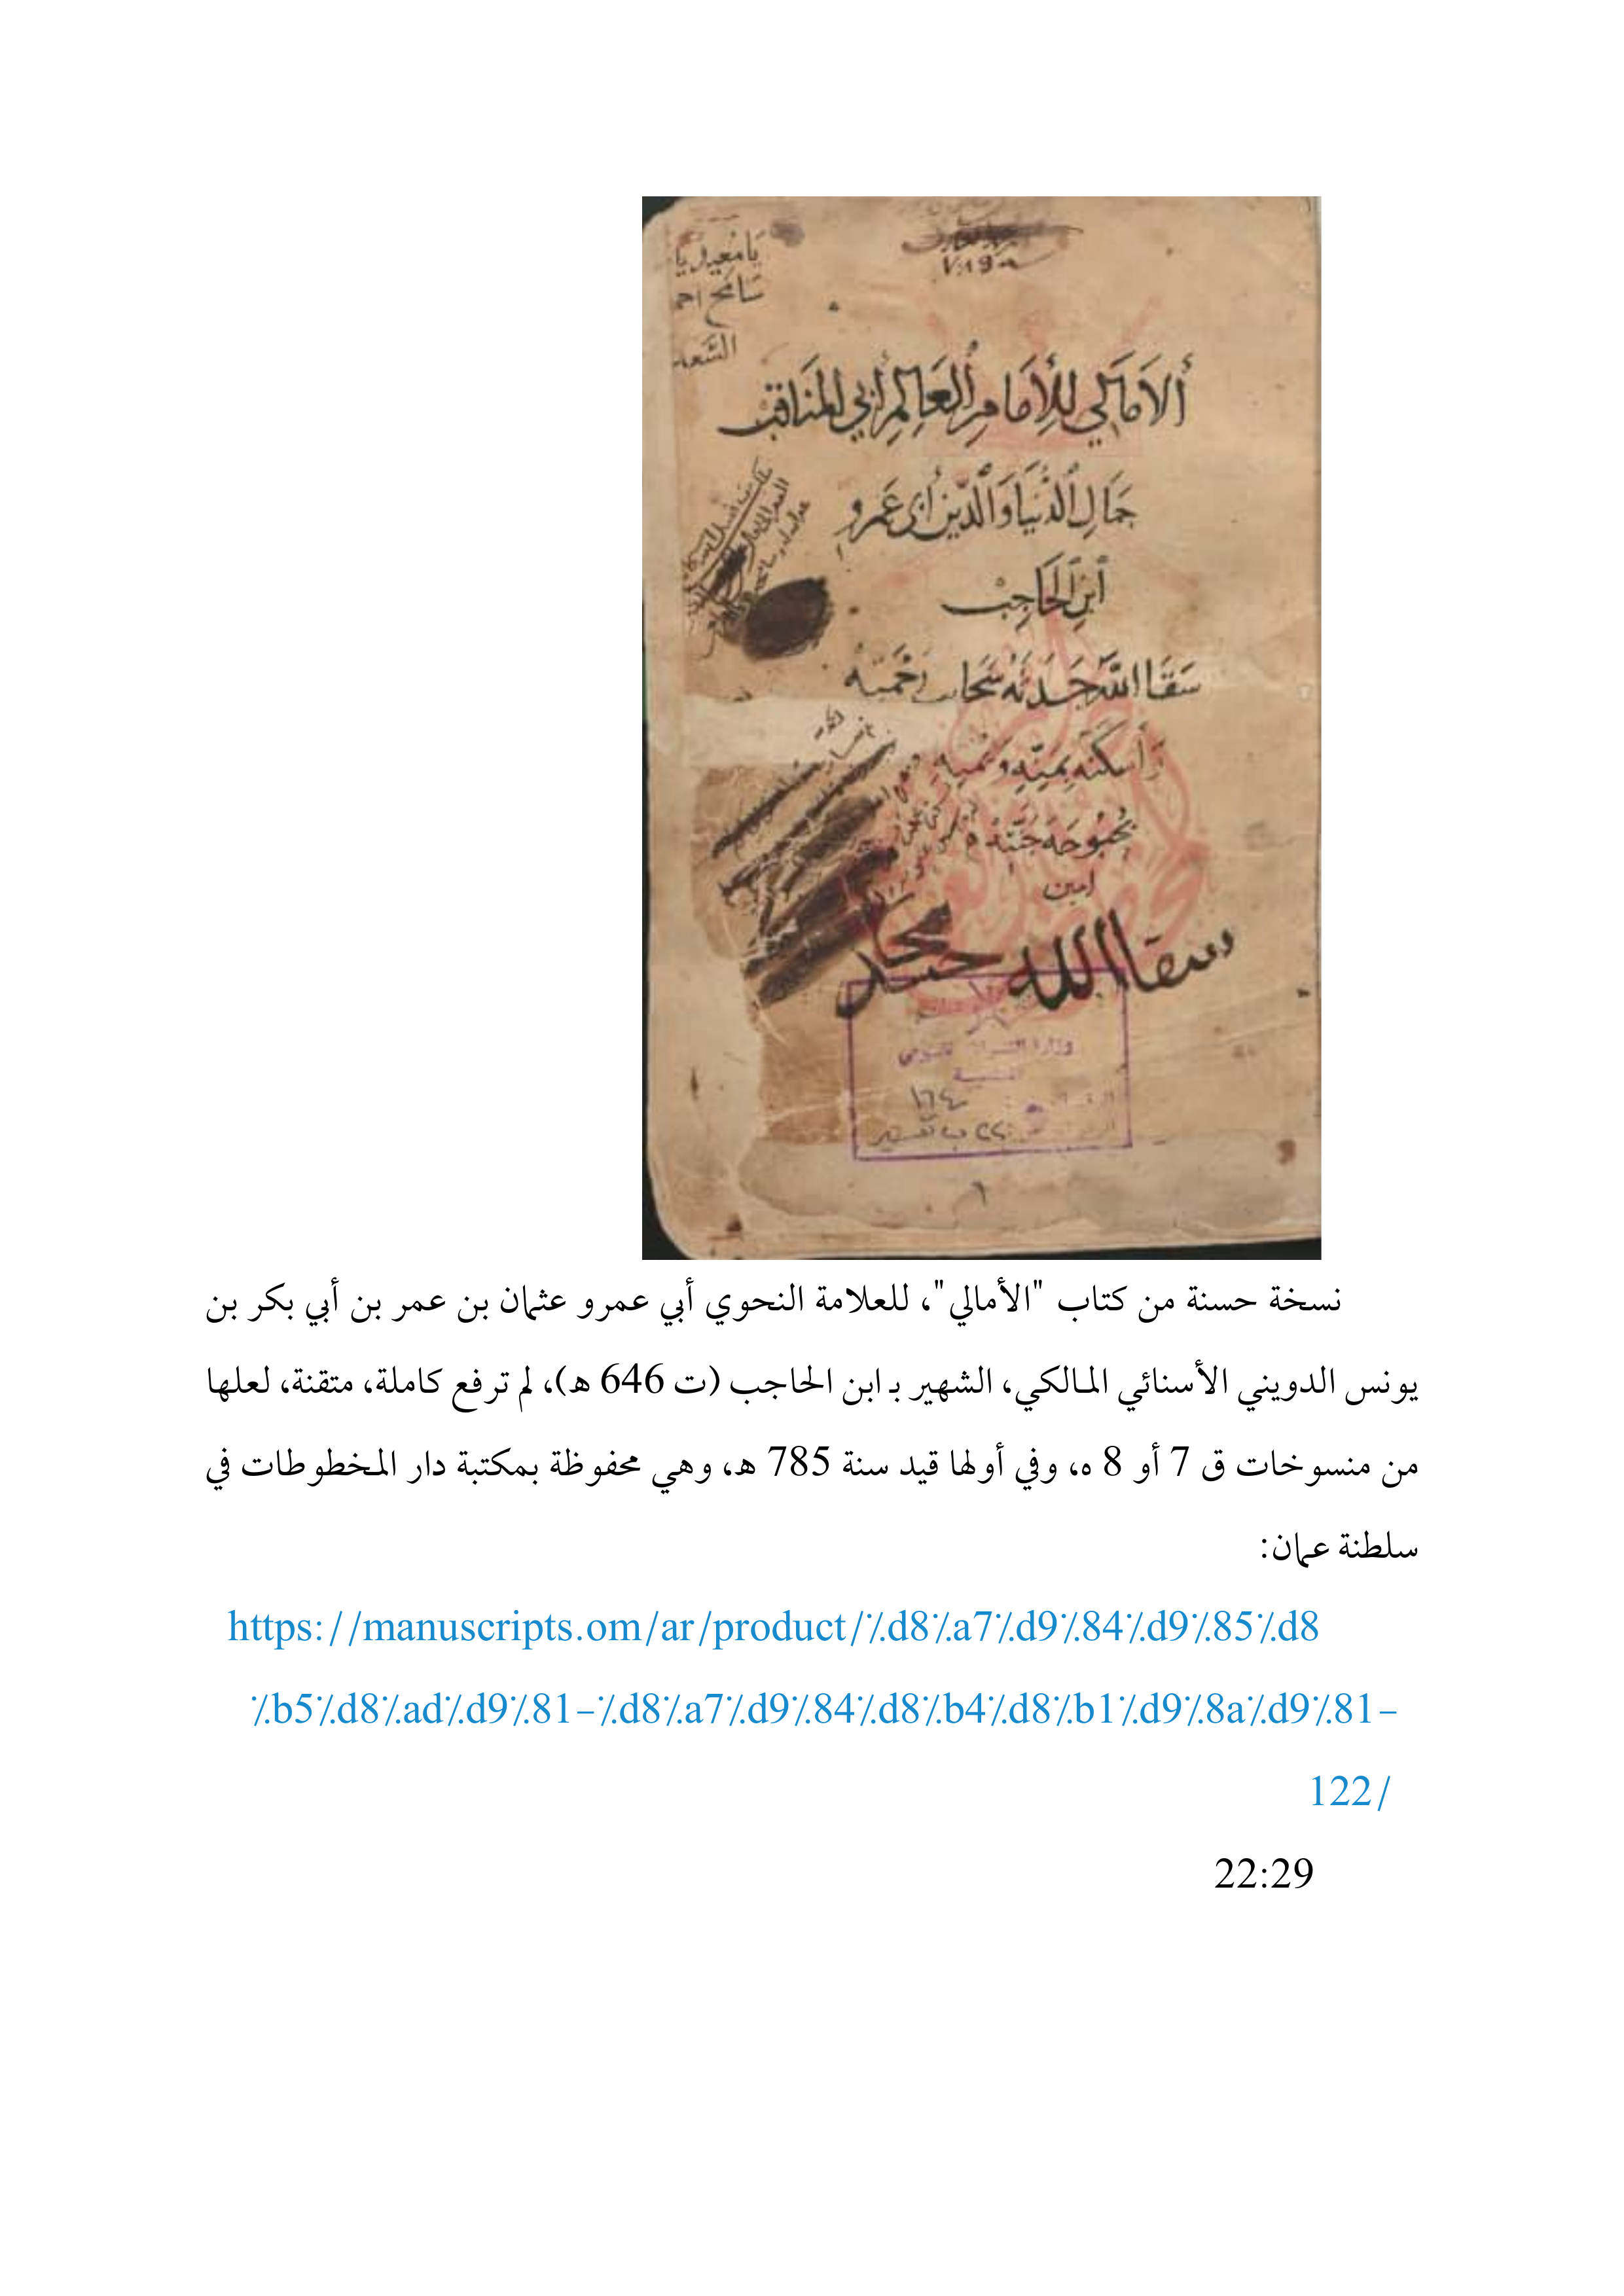 يا معين يا
سامح
الأَمَالي لِلأِمَامِ العَالِمِ أَبي المَنَاقِب
جَمَالِ الدُّنيَا وَالدِّينِ أبى عَمرو
ابنِ الحَاجِب
سَقَا اللّٰه جَدَثَه سَحَاب رَحْمته
وَأسكنَه
بُحبُوحَة جَنَّته
امين
سقا الله
وزارة التراث القومي
١٦٤
نسخة حسنة من كتاب "الأمالي"، للعلامة النحوي أبي عمرو عثمان بن عمر بن أبي بكر بن
يونس الدويني الأسنائي المالكي، الشهير بـ ابن الحاجب (ت 646 هـ)، لم ترفع كاملة، متقنة، لعلها
من منسوخات ق 7 أو 8 ه، وفي أولها قيد سنة 785 هـ، وهي محفوظة بمكتبة دار المخطوطات في
سلطنة عمان:
https://manuscripts.om/ar/product/٪d8٪a7٪d9٪84٪d9٪85٪d8
٪b5٪d8٪ad٪d9٪81-٪d8٪a7٪d9٪84٪d8٪b4٪d8٪b1٪d9٪8a٪d9٪81-
122/
22:29